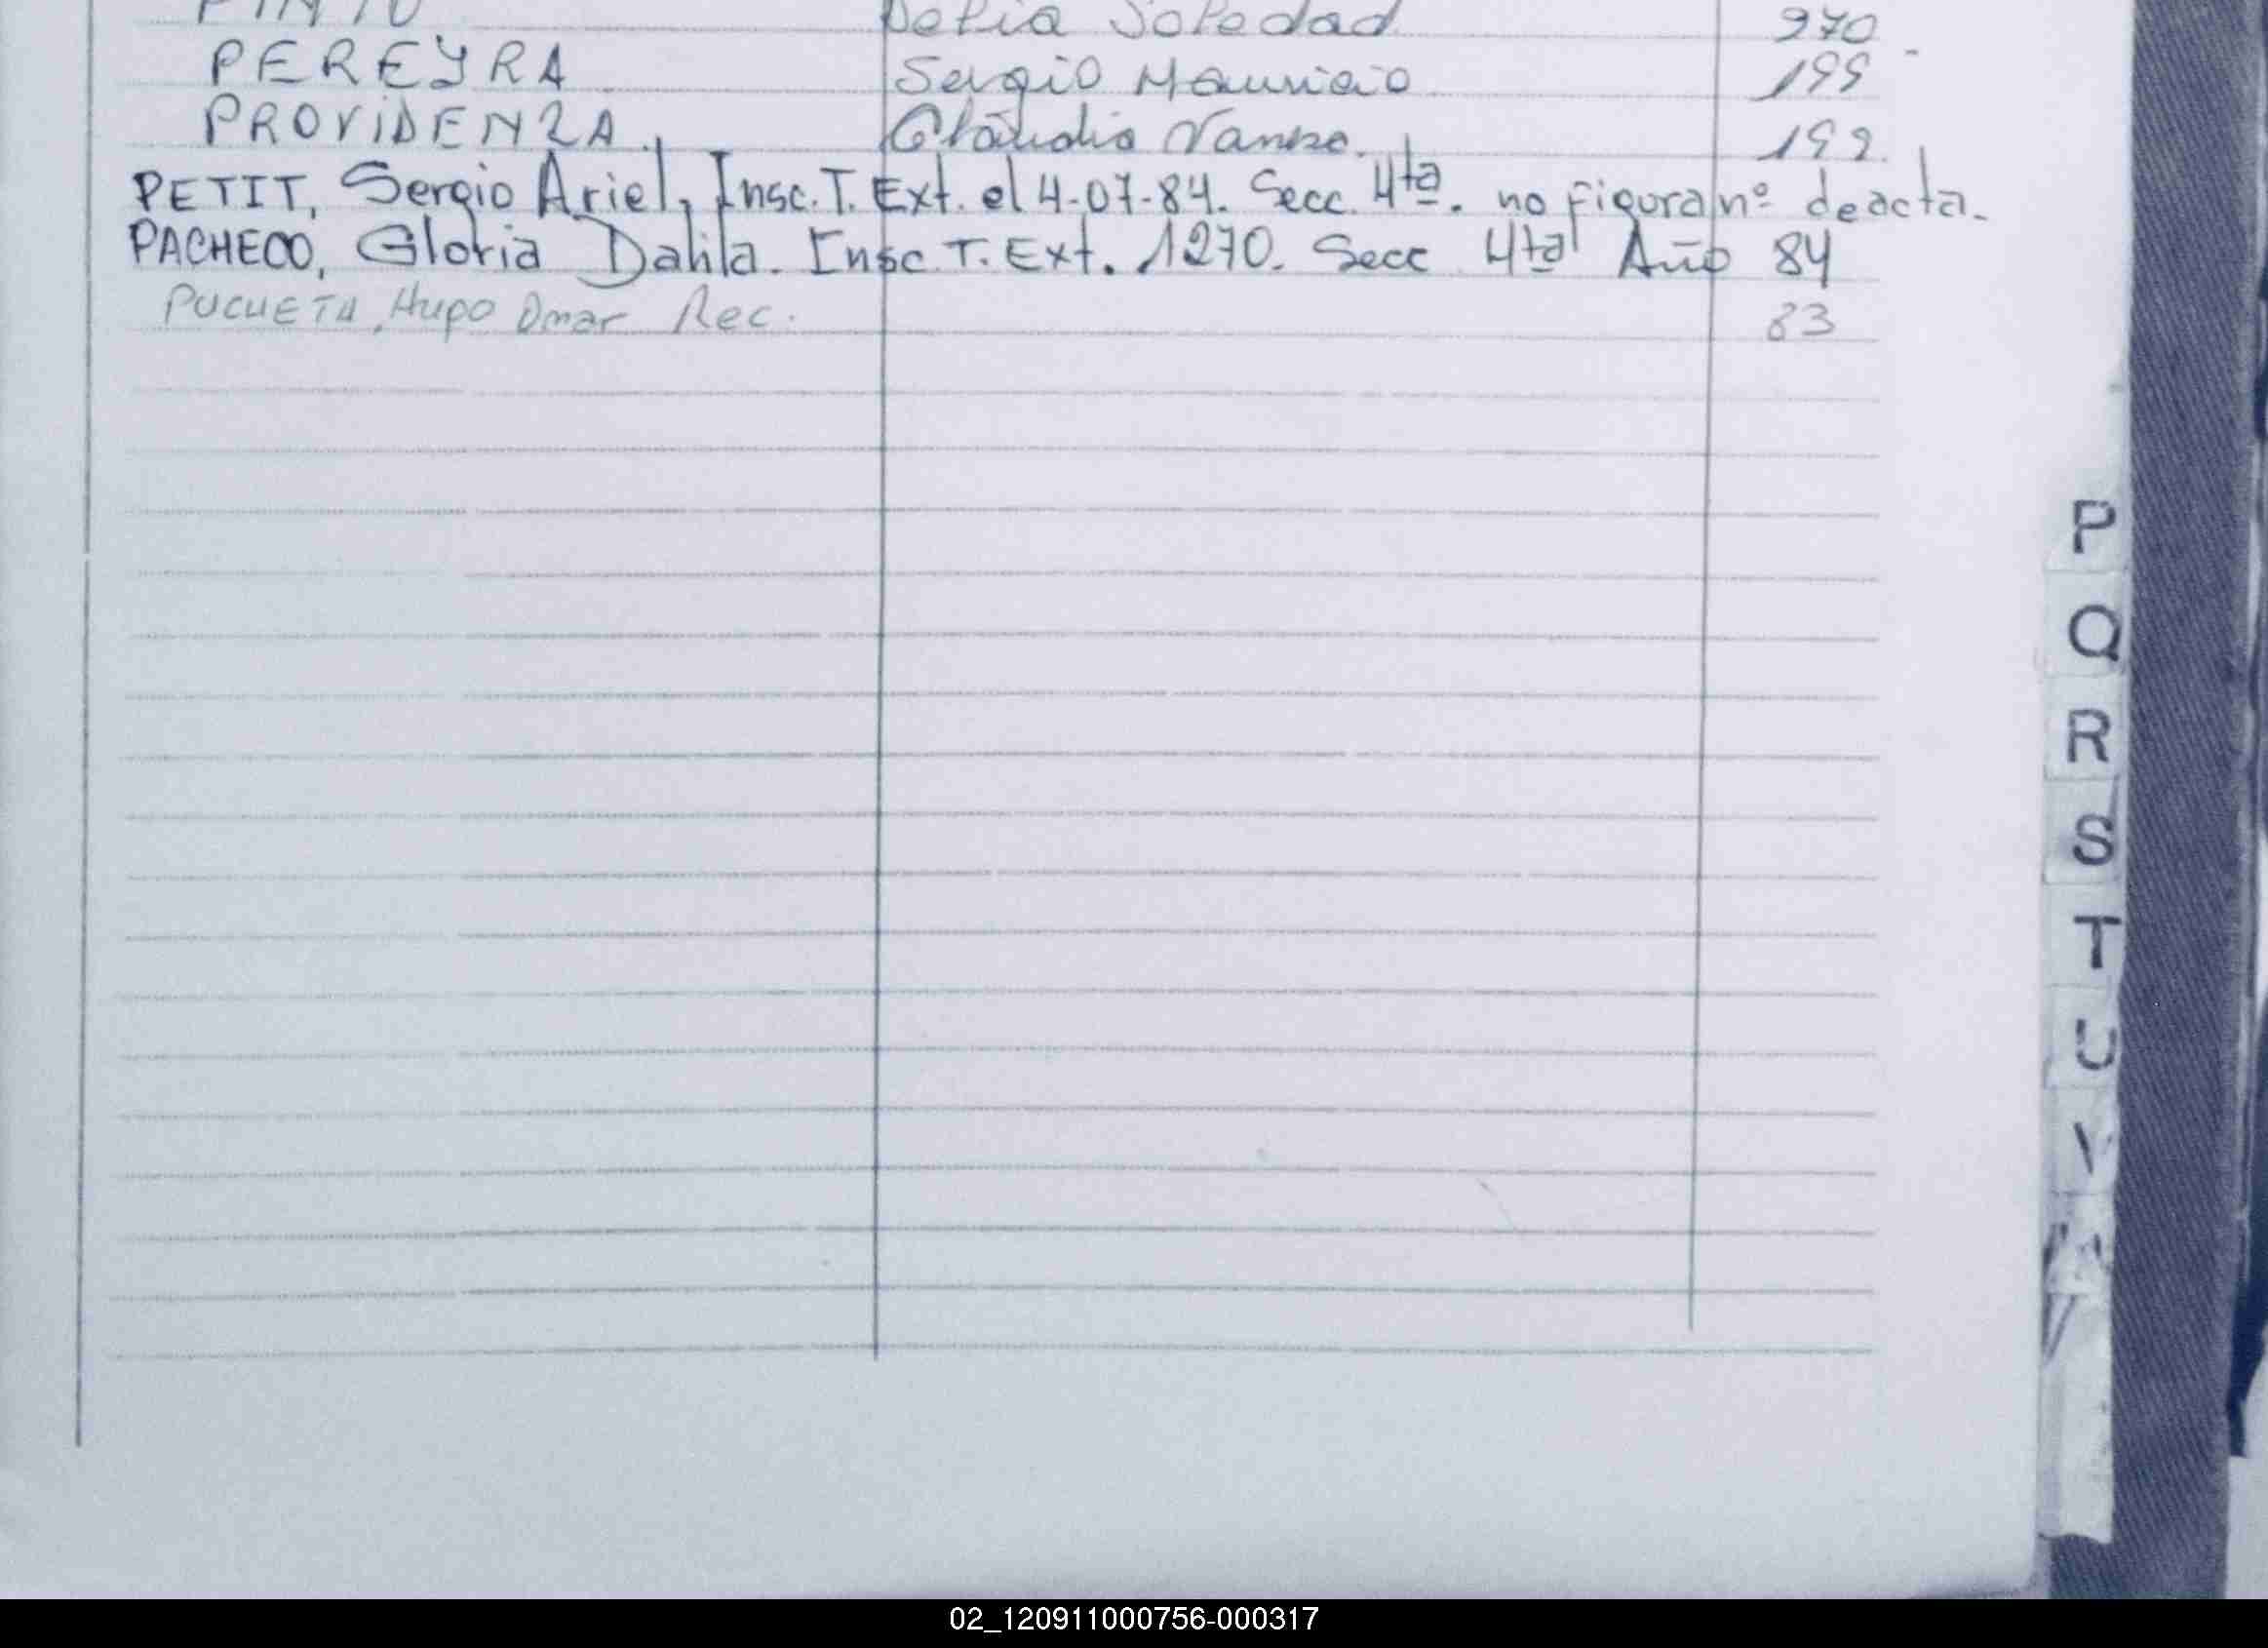 PINTO Delia Soledad 970
PEREYRA Sergio Mauricio 199
PROVIDENZA. Claudio 192.
PETIT, Sergio Ariel, Insc. T. Ext. el 4-07-84. Secc. 4ta. no Figura nº de acta.
PACHECO, Gloria Dalila. Insc. T. Ext. 1270. Secc 4ta Año 84
PUCHETA, Hugo Omar Rec. 83
P
Q
R
S
T
U
V
02_120911000756-000317